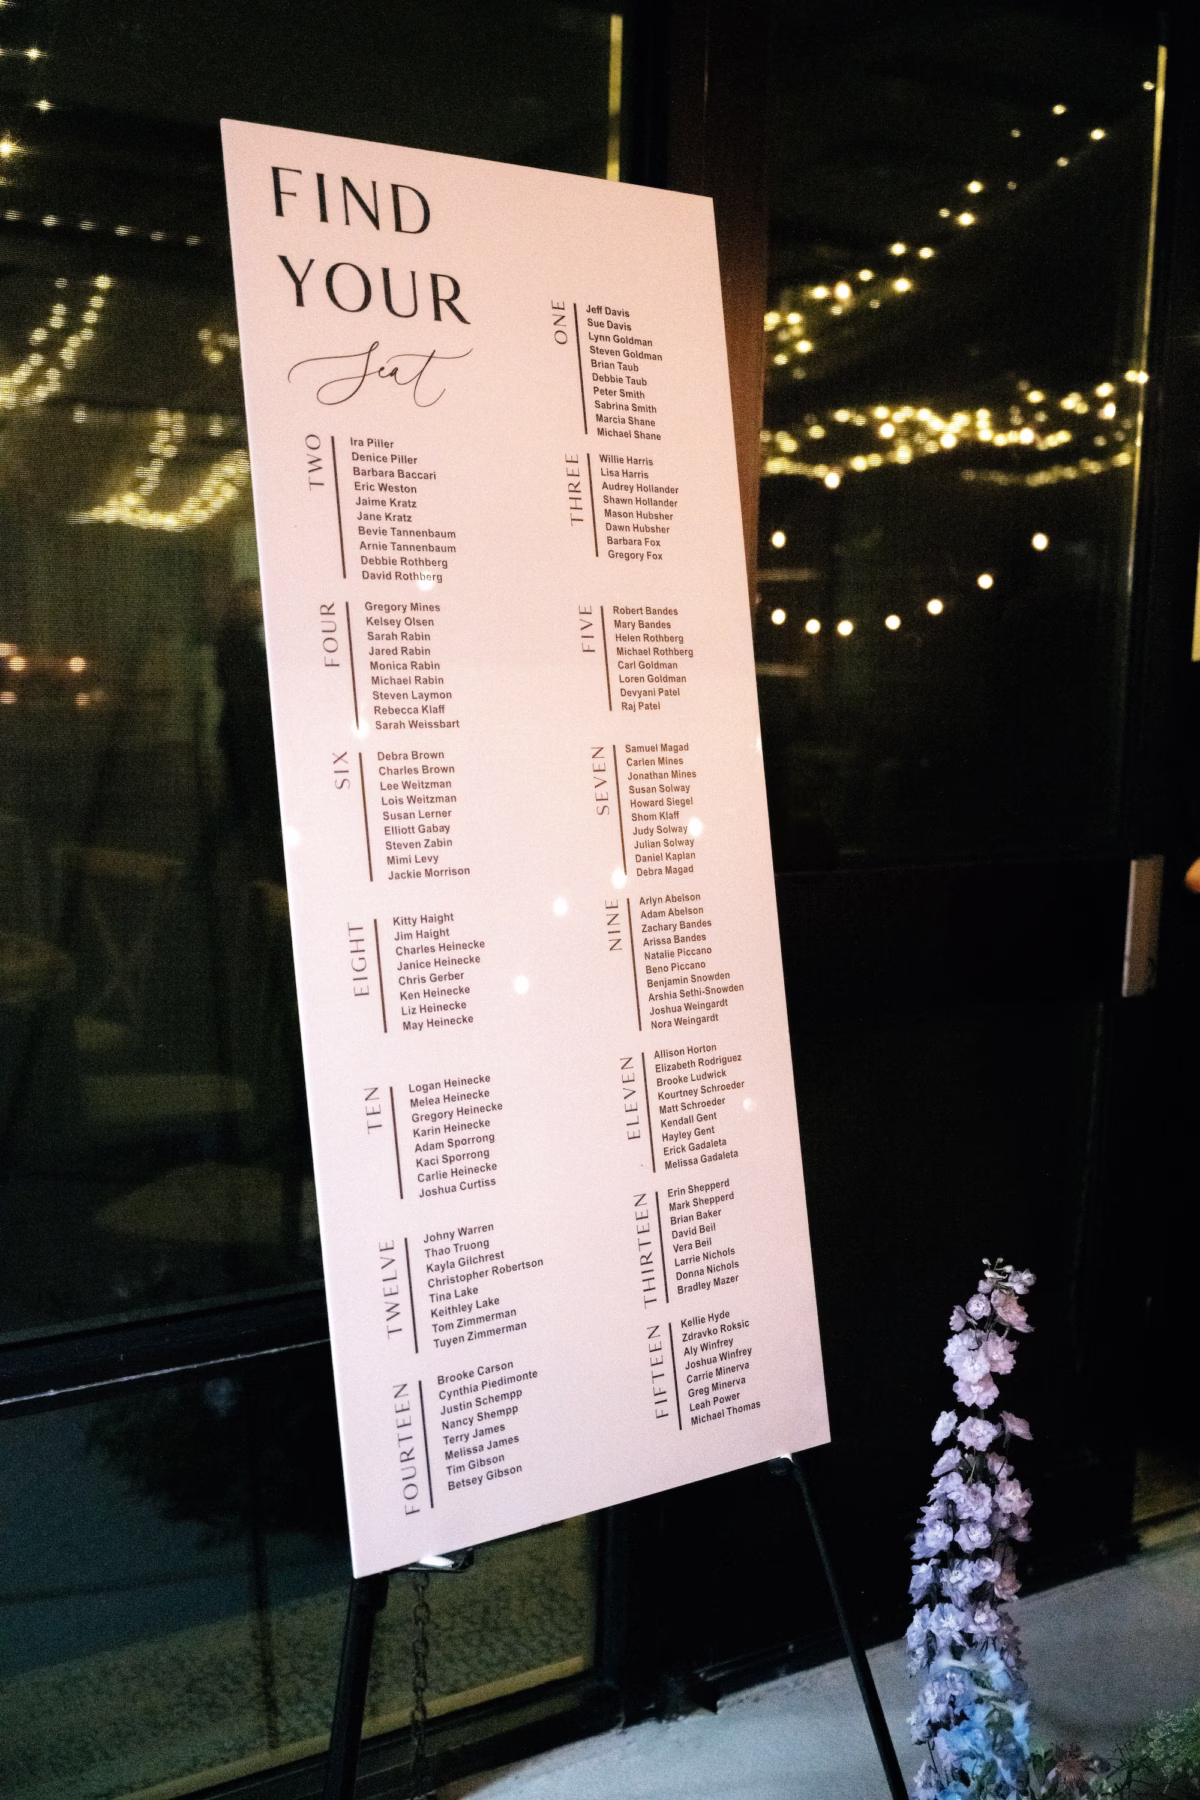 FIND
YOUR
Seat
ONE
Jeff Davis
Sue Davis
Lynn Goldman
Steven Goldman
Brian Taub
Debbie Taub
Peter Smith
Sabrina Smith
Marcia Shane
Michael Shane
TWO
Ira Piller
Denice Piller
Barbara Baccari
Eric Weston
Jaime Kratz
Jane Kratz
Bevie Tannenbaum
Arnie Tannenbaum
Debbie Rothberg
David Rothberg
THREE
Willie Harris
Lisa Harris
Audrey Hollander
Shawn Hollander
Mason Hubsher
Dawn Hubsher
Barbara Fox
Gregory Fox
FOUR
Gregory Mines
Kelsey Olsen
Sarah Rabin
Jared Rabin
Monica Rabin
Michael Rabin
Steven Laymon
Rebecca Klaff
Sarah Weissbart
FIVE
Robert Bandes
Mary Bandes
Helen Rothberg
Michael Rothberg
Carl Goldman
Loren Goldman
Devyani Patel
Raj Patel
SIX
Debra Brown
Charles Brown
Lee Weitzman
Lois Weitzman
Susan Lerner
Elliott Gabay
Steven Zabin
Mimi Levy
Jackie Morrison
SEVEN
Samuel Magad
Carlen Mines
Jonathan Mines
Susan Solway
Howard Siegel
Shom Klaff
Judy Solway
Julian Solway
Daniel Kaplan
Debra Magad
EIGHT
Kitty Haight
Jim Haight
Charles Heinecke
Janice Heinecke
Chris Gerber
Ken Heinecke
Liz Heinecke
May Heinecke
NINE
Arlyn Abelson
Adam Abelson
Zachary Bandes
Arissa Bandes
Natalie Piccano
Beno Piccano
Benjamin Snowden
Arshia Sethi-Snowden
Joshua Weingardt
Nora Weingardt
TEN
Logan Heinecke
Melea Heinecke
Gregory Heinecke
Karin Heinecke
Adam Sporrong
Kaci Sporrong
Carlie Heinecke
Joshua Curtiss
ELEVEN
Allison Horton
Elizabeth Rodriguez
Brooke Ludwick
Kourtney Schroeder
Matt Schroeder
Kendall Gent
Hayley Gent
Erick Gadaleta
Melissa Gadaleta
TWELVE
Johny Warren
Thao Truong
Kayla Gilchrest
Christopher Robertson
Tina Lake
Keithley Lake
Tom Zimmerman
Tuyen Zimmerman
THIRTEEN
Erin Shepperd
Mark Shepperd
Brian Baker
David Beil
Vera Beil
Larrie Nichols
Donna Nichols
Bradley Mazer
FOURTEEN
Brooke Carson
Cynthia Piedimonte
Justin Schempp
Nancy Shempp
Terry James
Melissa James
Tim Gibson
Betsey Gibson
FIFTEEN
Kellie Hyde
Zdravko Roksic
Aly Winfrey
Joshua Winfrey
Carrie Minerva
Greg Minerva
Leah Power
Michael Thomas